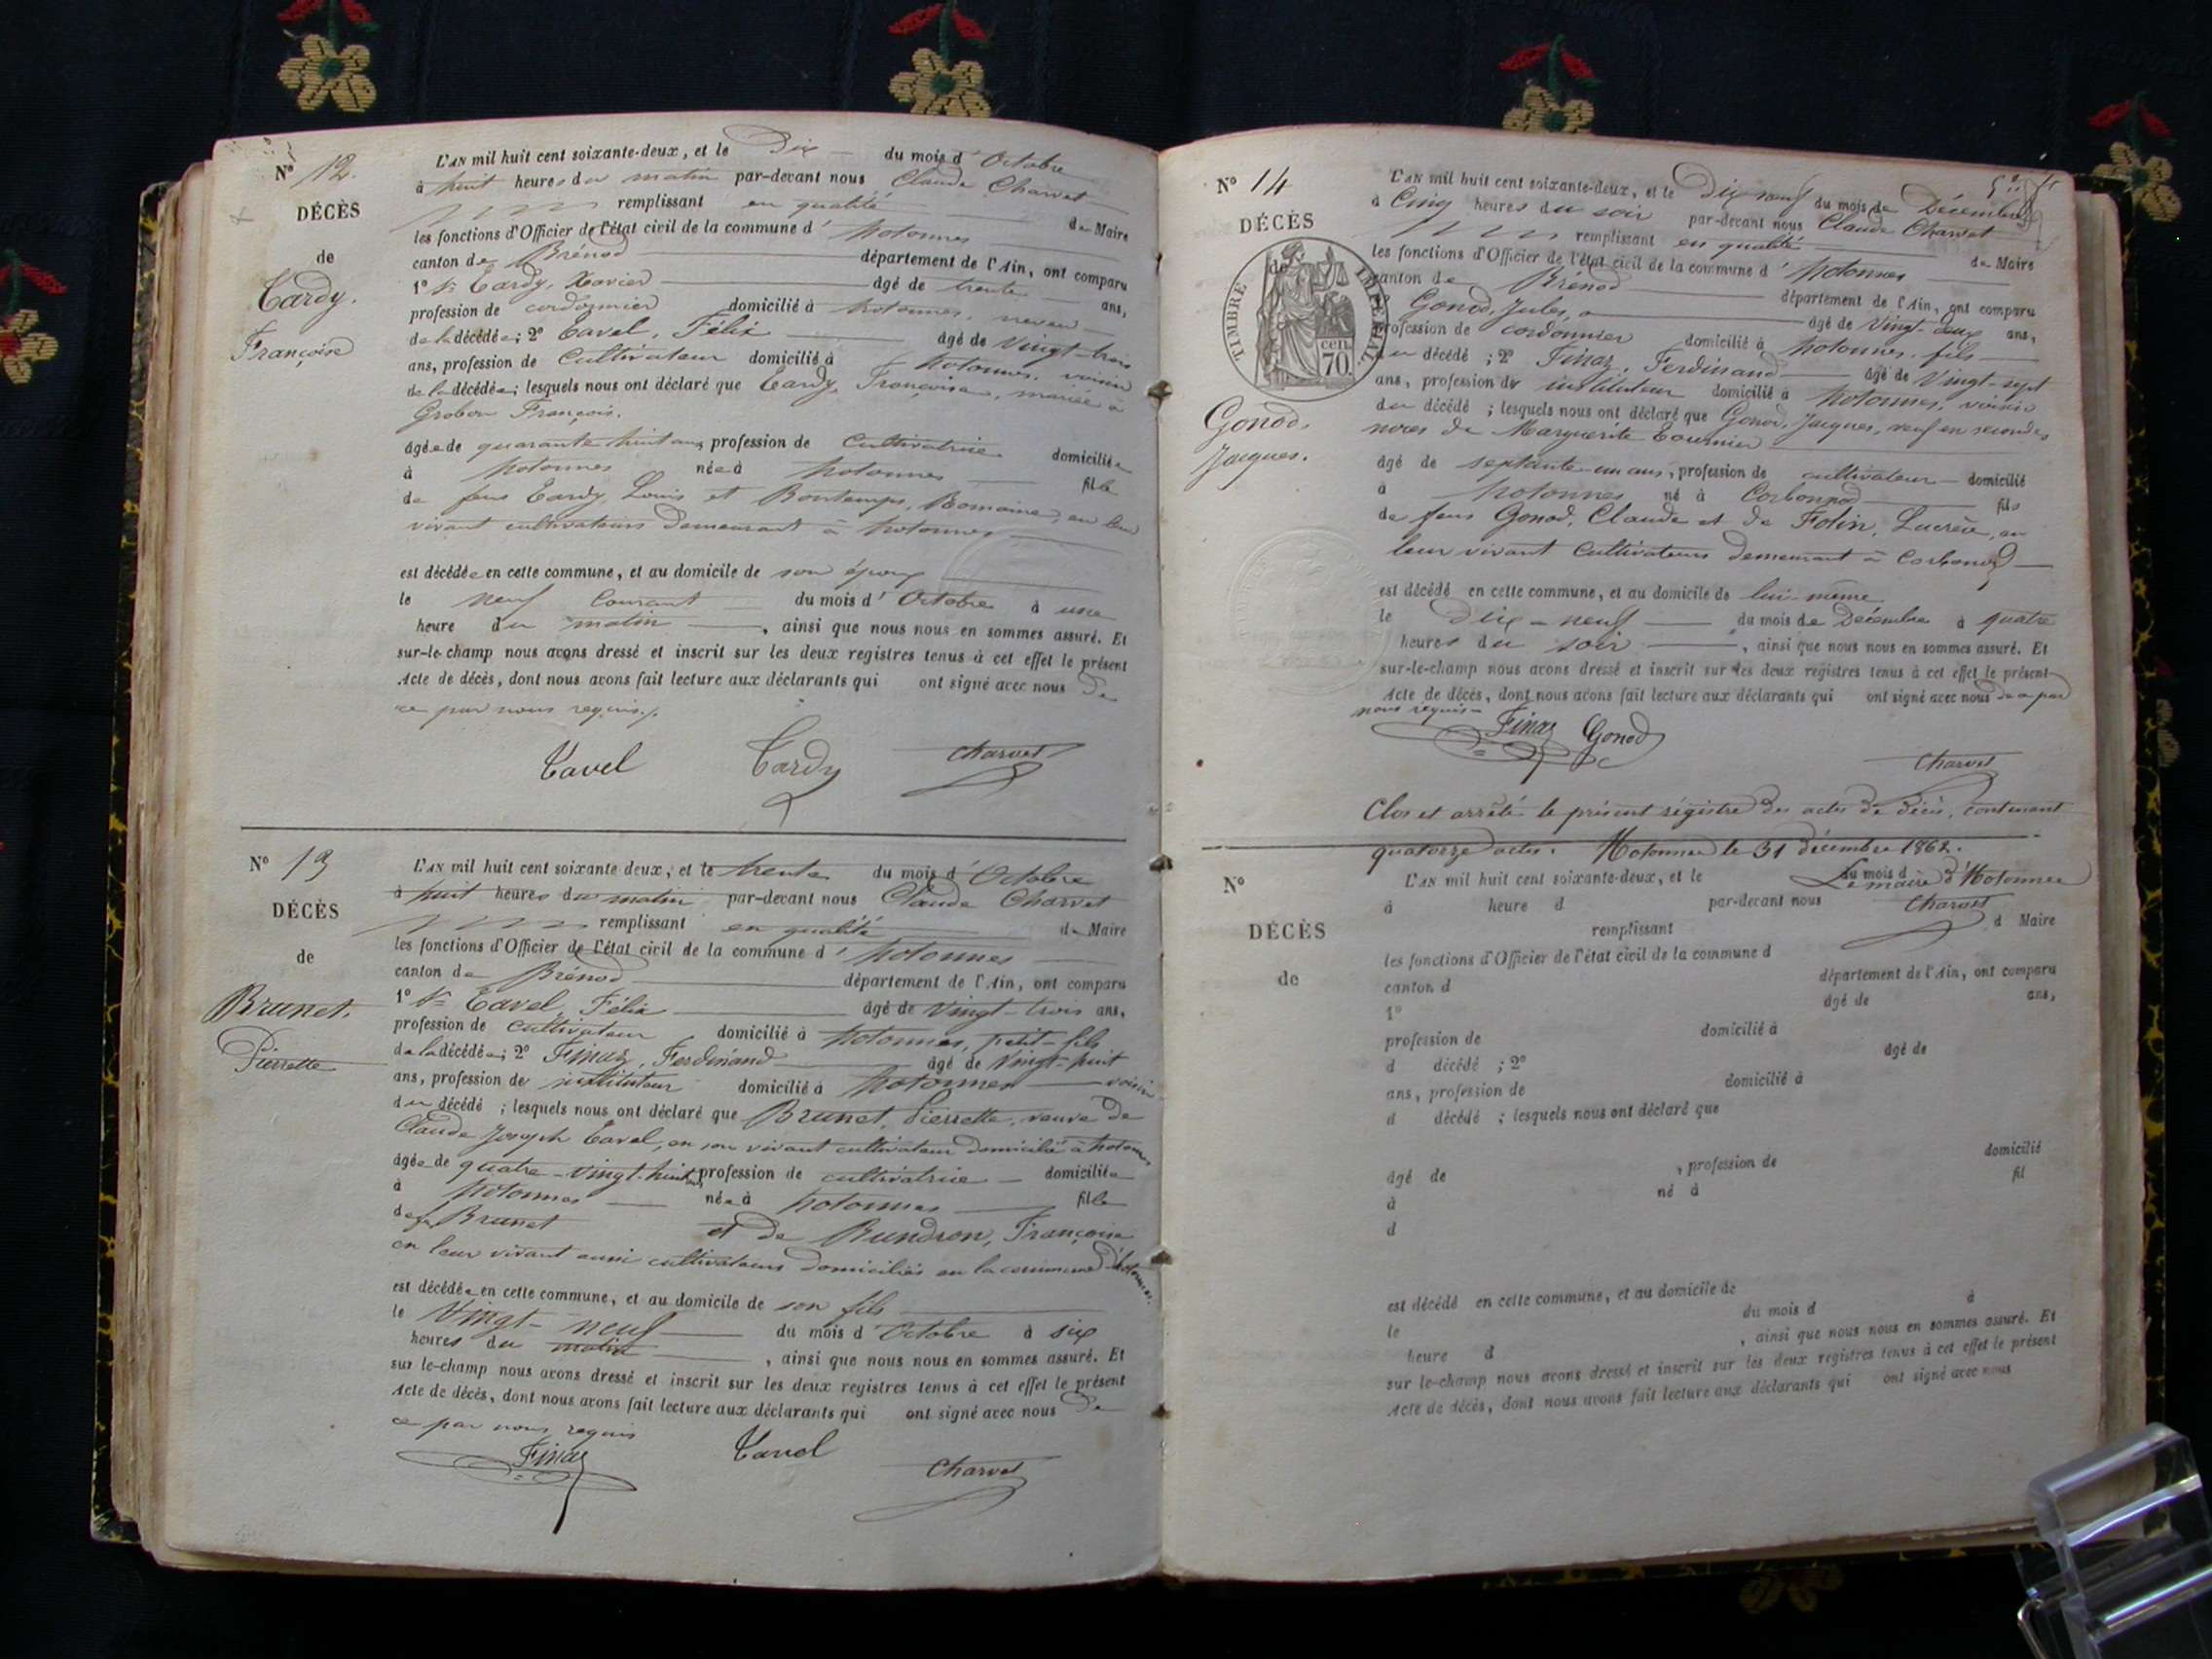 Nº 12.
DÉCÈS
de
Tardy,
Françoise
L'AN mil huit cent soixante-deux, et le Dix du mois d'Octobre
à huit heures du matin par-devant nous Claude Charvet
remplissant en qualité de Maire
les fonctions d'Officier de l'état civil de la commune d'hotonnes
canton de Brénod département de l'Ain, ont comparu
1º Tardy, Xavier âgé de trente ans,
profession de cordonnier domicilié à hotonnes, neveu
de la décédée; 2º Tavel, Félix âgé de vingt-trois
ans, profession de Cultivateur domicilié à hotonnes, voisin
de la décédée; lesquels nous ont déclaré que Tardy, Françoise, mariée à
Grobon François.
âgée de quarante huit ans, profession de Cultivatrice domiciliée
à hotonnes née à hotonnes fille
de feus Tardy Louis et Bontemps, Romaine, en leur
vivant cultivateurs demeurant à hotonnes
est décédée en cette commune, et au domicile de son époux
le neuf Courant du mois d'Octobre à une
heure du matin, ainsi que nous nous en sommes assuré. Et
sur-le-champ nous avons dressé et inscrit sur les deux registres tenus à cet effet le présent
Acte de décès, dont nous avons fait lecture aux déclarants qui ont signé avec nous de
ce par nous requis.
Tavel Tardy Charvet
Nº 13
DÉCÈS
de
Brunet,
Pierrette
L'AN mil huit cent soixante deux, et le trente du mois d'Octobre
à huit heures du matin par-devant nous Claude Charvet
remplissant en qualité de Maire
les fonctions d'Officier de l'état civil de la commune d'hotonnes
canton de Brénod département de l'Ain, ont comparu
1º Tavel, Félix âgé de vingt-trois ans,
profession de cultivateur domicilié à hotonnes, petit-fils
de la décédée; 2º Finaz, Ferdinand âgé de vingt-huit
ans, profession de instituteur domicilié à hotonnes voisin
du décédé ; lesquels nous ont déclaré que Brunet, Pierrette, veuve de
Claude Joseph Tavel, en son vivant cultivateur domicilié à hotonnes
âgée de quatre-vingt-huit ans, profession de cultivatrice domiciliée
à hotonnes née à hotonnes fille
de Brunet et de Rundron, Françoise
en leur vivant aussi cultivateurs domiciliés en la commune d'hotonnes.
est décédée en cette commune, et au domicile de son fils
le vingt-neuf du mois d'Octobre à six
heures du matin, ainsi que nous nous en sommes assuré. Et
sur le-champ nous avons dressé et inscrit sur les deux registres tenus à cet effet le présent
Acte de décès, dont nous avons fait lecture aux déclarants qui ont signé avec nous De
ce par nous requis
Finaz Tavel Charvet
Nº 14
DÉCÈS
de
TIMBRE IMPÉRIAL
70 cen.
Gonod,
Jacques.
L'AN mil huit cent soixante-deux, et le Dix neuf du mois de Décembre
à Cinq heures du soir par-devant nous Claude Charvet
remplissant en qualité de Maire
les fonctions d'Officier de l'état civil de la commune d'hotonnes
canton de Brénod département de l'Ain, ont comparu
Gonod, Jules, âgé de vingt-deux ans,
profession de cordonnier domicilié à hotonnes, fils
du décédé ; 2º Finaz, Ferdinand âgé de vingt-sept
ans, profession de instituteur domicilié à hotonnes, voisin
du décédé ; lesquels nous ont déclaré que Gonod, Jacques, veuf en secondes
noces de Marguerite Tournier
âgé de septante-un ans, profession de cultivateur domicilié
à hotonnes né à Corbonod fils
de feus Gonod, Claude et de Folin, Lucrèce, en
leur vivant Cultivateurs demeurant à Corbonod
est décédé en cette commune, et au domicile de lui-même
le dix-neuf du mois de Décembre à quatre
heures du soir, ainsi que nous nous en sommes assuré. Et
sur-le-champ nous avons dressé et inscrit sur les deux registres tenus à cet effet le présent
Acte de décès, dont nous avons fait lecture aux déclarants qui ont signé avec nous de ce par
nous requis
Finaz Gonod
Charvet
Clos et arrêté le présent régistre des actes de décès, contenant
quatorze actes. Hotonnes le 31 décembre 1862.
Le maire d'Hotonnes
Charvet
Nº
DÉCÈS
de
L'AN mil huit cent soixante-deux, et le du mois d
à heure d par-devant nous
remplissant d Maire
les fonctions d'Officier de l'état civil de la commune d
canton d département de l'Ain, ont comparu
1º âgé de ans,
profession de domicilié à
d décédé ; 2º âgé de
ans, profession de domicilié à
d décédé ; lesquels nous ont déclaré que
âgé de , profession de domicilié
à né à fil
d
est décédé en cette commune, et au domicile de
le du mois d à
heure d , ainsi que nous nous en sommes assuré. Et
sur le-champ nous avons dressé et inscrit sur les deux registres tenus à cet effet le présent
Acte de décès, dont nous avons fait lecture aux déclarants qui ont signé avec nous